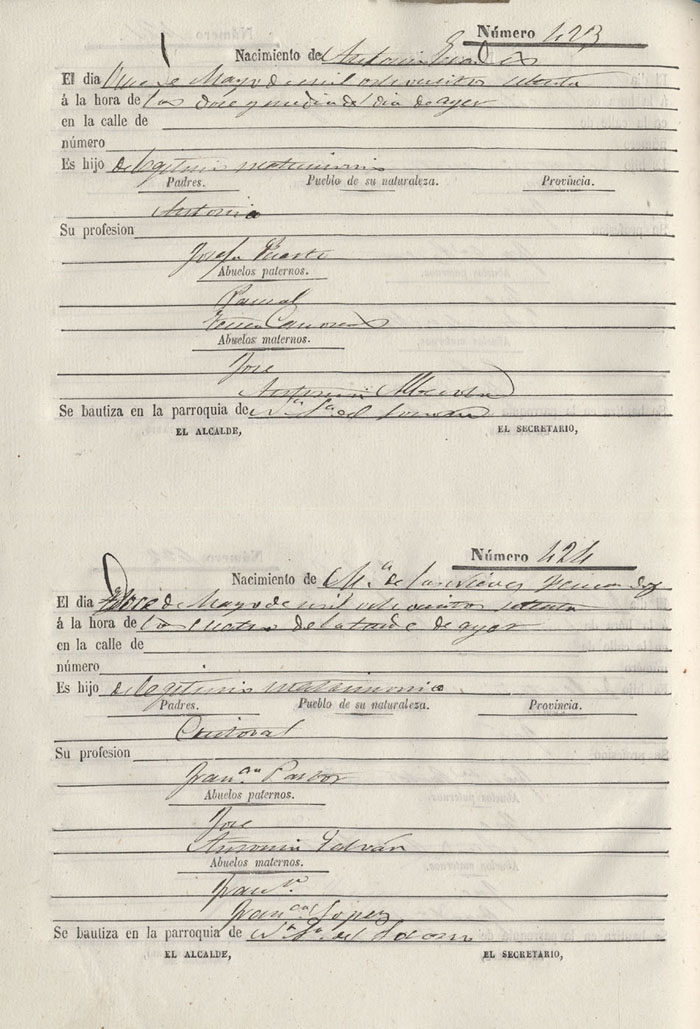 Número 423
Nacimiento de Antonio
El dia once de Mayo de mil ochocientos setenta
á la hora de las doce y media del dia de ayer
en la calle de
número
Es hijo de legitimo matrimonio
Padres. Pueblo de su naturaleza. Provincia.
Antonio
Su profesion
Josefa Puerto
Abuelos paternos.
Pascual
Abuelos maternos.
Jose
Antonia
Se bautiza en la parroquia de Nª Sª del Socorro
EL ALCALDE, EL SECRETARIO,
Número 424
Nacimiento de Mª de las Nieves Fernandez
El dia doce de Mayo de mil ochocientos setenta
á la hora de las cuatro de la tarde de ayer
en la calle de
número
Es hijo de legitimo matrimonio
Padres. Pueblo de su naturaleza. Provincia.
Cristoval
Su profesion
Franᶜᵃ Pastor
Abuelos paternos.
Jose
Antonia Galván
Abuelos maternos.
Franᶜᵒ
Franᶜᵃ Lopez
Se bautiza en la parroquia de Nª Sª del Socorro
EL ALCALDE, EL SECRETARIO,